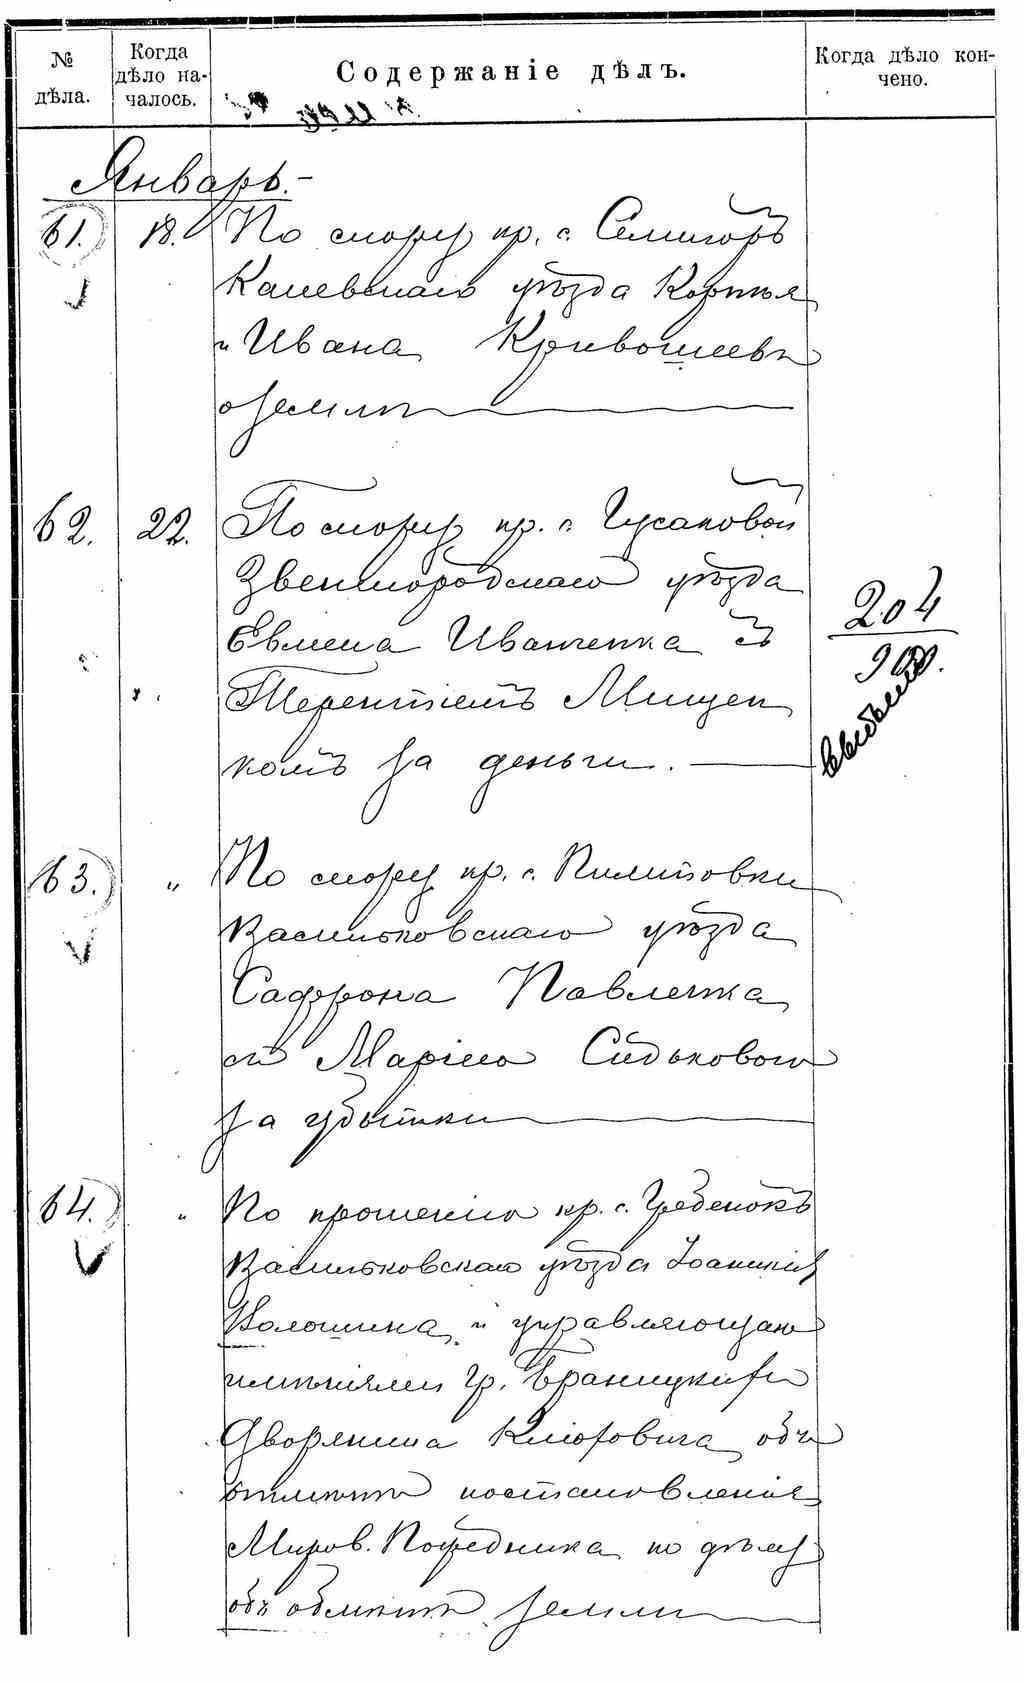 № дѣла.
Когда дѣло на-
чалось.
Содержаніе дѣлъ.
Когда дѣло кон-
чено.
Январь.-
61. 18. По спору кр. с. Семигоръ
Каневскаго уѣзда Корнѣя
и Ивана Кривошеевъ
о землѣ
62. 22. По спору кр. с. Гусаковой
Звенигородскаго уѣзда
Евмена Иванченка съ
Терентіемъ Мищен
комъ за деньги.
204
63. " По спору кр. с. Пилиповки
Васильковскаго уѣзда
Сафрона Павленка
съ Маріею Сидьковою
за убытки
64. " По прошенію кр. с. Гребенокъ
Васильковскаго уѣзда Іоанникія
Волошина и управляющаго
имѣніями гр. Браницкихъ
Дворянина объ
отмѣнѣ постановленія
Миров. Посредника по дѣлу
объ обмѣнѣ земли